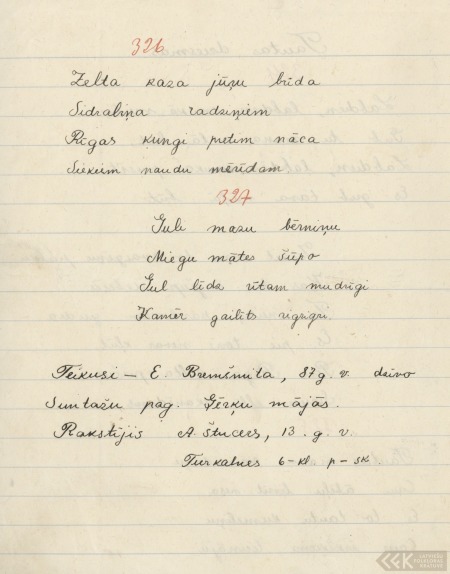 326
Zelta kaza jūŗu brida
Sidrabiņa radziņiem
Rīgas kungi pretim nāca
Siekiem naudu mērīdam
327
Guli mazu bērniņu
Miegu mātes šūpo
Gul līdz rītam mudrīgi
Kamēr gailits rigrigu.
Teikusi – E. Bremšmita, 87 g. v. dzīvo
Suntažu pag. Ģērķu mājās.
Rakstījis A. Štucers, 13. g. v.
Turkalnes 6-kl. p-sk.
LATVIEŠU FOLKLORAS KRĀTUVE